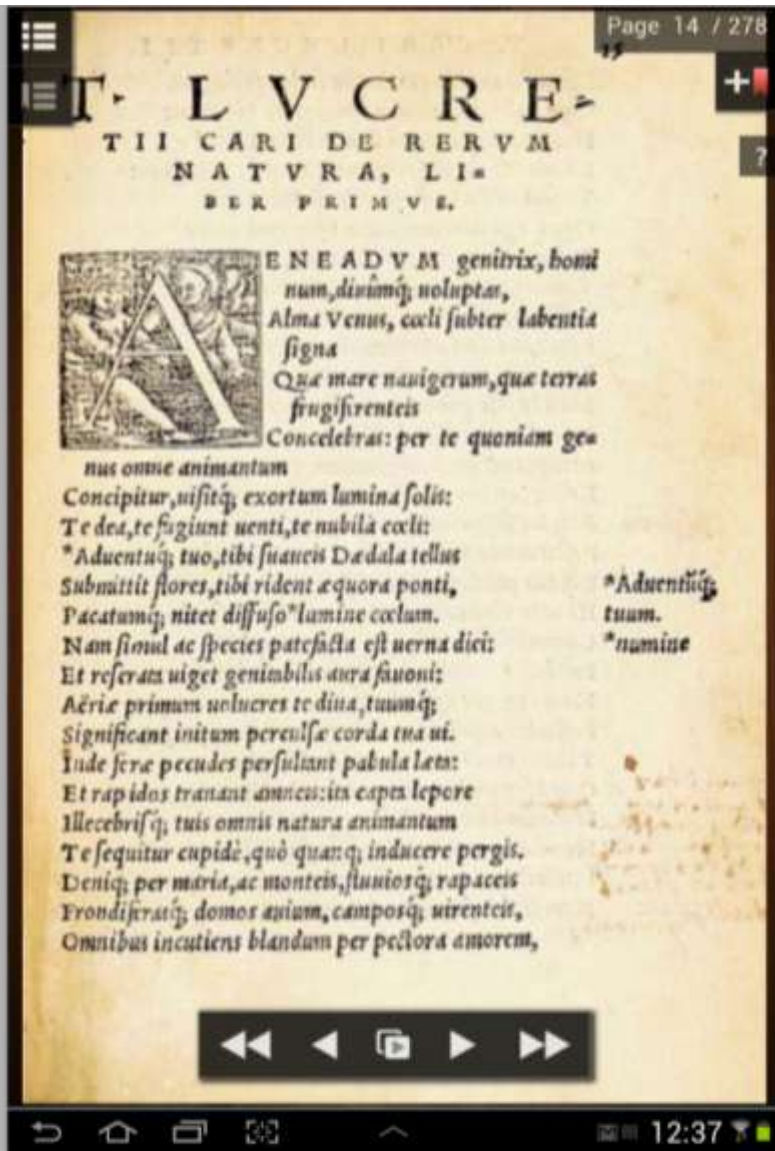 Page 14 / 278
15
T. LVCRE-
TII CARI DE RERVM
NATVRA, LI=
BER PRIMVS.
AENEADVM genitrix, homi
num, diuûmq; uoluptas,
Alma Venus, cœli subter labentia
signa
Quæ mare nauigerum, quæ terras
frugiferenteis
Concelebras: per te quoniam ge=
nus omne animantum
Concipitur, uisitq; exortum lumina solis:
Te dea, te fugiunt uenti, te nubila cœli:
*Aduentuq; tuo, tibi suaueis Dædala tellus
Submittit flores, tibi rident æquora ponti,
Pacatumq; nitet diffuso *lumine cœlum.
Nam simul ac species patefacta est uerna diei:
Et reserata uiget genitabilis aura fauoni:
Aëriæ primum uolucres te diua, tuumq;
Significant initum perculsæ corda tua ui.
Inde feræ pecudes persultant pabula læta:
Et rapidos tranant amneis: ita capta lepore
Illecebrisq; tuis omnis natura animantum
Te sequitur cupidè, quò quanq; inducere pergis.
Deniq; per maria, ac monteis, fluuiosq; rapaceis
Frondiferasq; domos auium, camposq; uirenteis,
Omnibus incutiens blandum per pectora amorem,
*Aduentũq;
tuum.
*numine
12:37